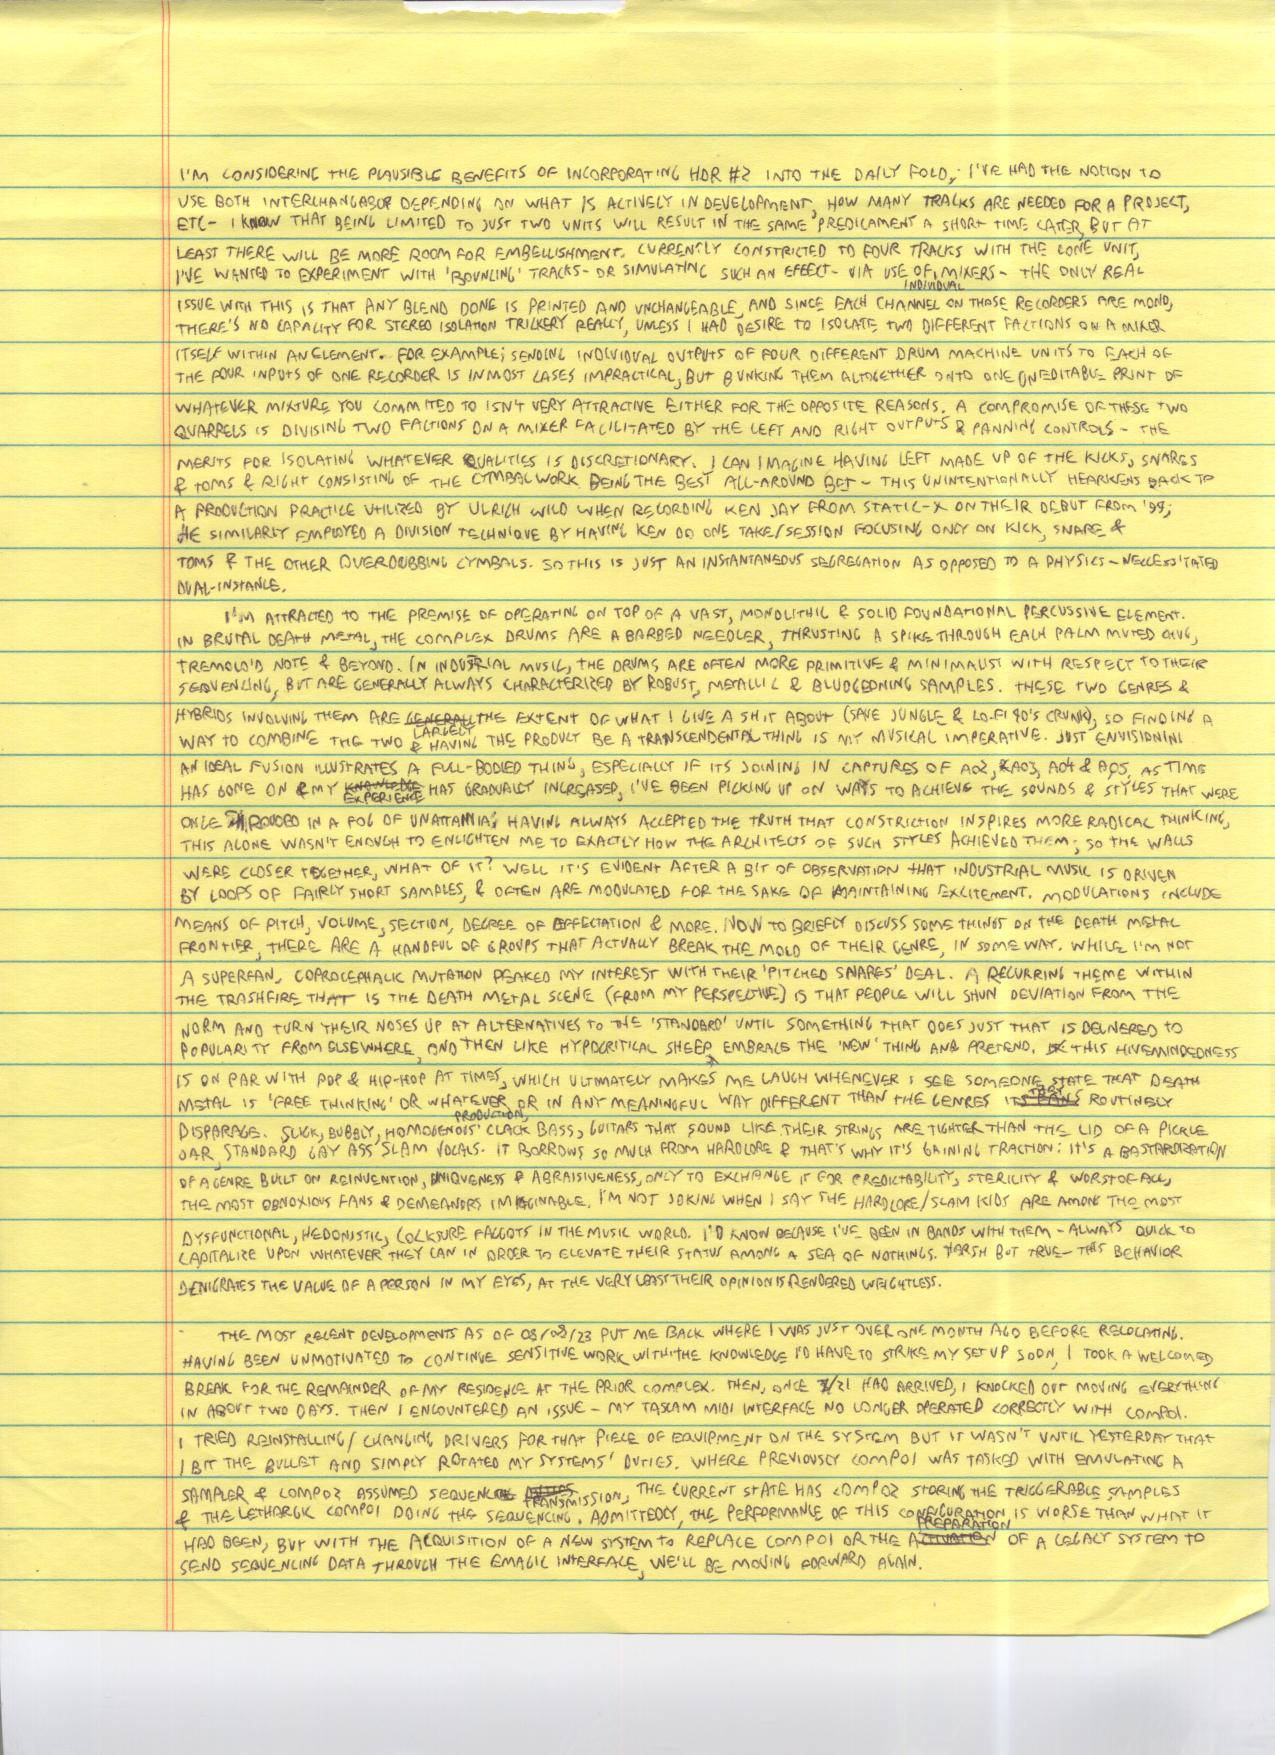 I'M CONSIDERING THE PLAUSIBLE BENEFITS OF INCORPORATING HDR #2 INTO THE DAILY FOLD, I'VE HAD THE NOTION TO
USE BOTH DEPENDING ON WHAT IS ACTIVELY IN DEVELOPMENT, HOW MANY TRACKS ARE NEEDED FOR A PROJECT,
ETC- I KNOW THAT BEING LIMITED TO JUST TWO UNITS WILL RESULT IN THE SAME PREDICAMENT A SHORT TIME LATER, BUT AT
LEAST THERE WILL BE MORE ROOM FOR EMBELLISHMENT. CURRENTLY CONSTRICTED TO FOUR TRACKS WITH THE LONE UNIT,
I'VE WANTED TO EXPERIMENT WITH 'BOUNCING' TRACKS- OR SIMULATING SUCH AN EFFECT- VIA USE OF INDIVIDUAL MIXERS- THE ONLY REAL
ISSUE WITH THIS IS THAT ANY BLEND DONE IS PRINTED AND UNCHANGEABLE, AND SINCE EACH CHANNEL ON THOSE RECORDERS ARE MONO,
THERE'S NO CAPALITY FOR STEREO ISOLATION TRICKERY REALLY, UNLESS I HAD DESIRE TO ISOLATE TWO DIFFERENT FACTIONS ON A MIXER
ITSELF WITHIN AN ELEMENT. FOR EXAMPLE; SENDING INDIVIDUAL OUTPUTS OF FOUR DIFFERENT DRUM MACHINE UNITS TO EACH OF
THE FOUR INPUTS OF ONE RECORDER IS IN MOST CASES IMPRACTICAL, BUT BUNKING THEM ALTOGETHER ONTO ONE UNEDITABLE PRINT OF
WHATEVER MIXTURE YOU COMMITED TO ISN'T VERY ATTRACTIVE EITHER FOR THE OPPOSITE REASONS. A COMPROMISE OF THESE TWO
QUARRELS IS DIVISING TWO FACTIONS ON A MIXER FACILITATED BY THE LEFT AND RIGHT OUTPUTS & PANNING CONTROLS - THE
MERITS FOR ISOLATING WHATEVER QUALITIES IS DISCRETIONARY. I CAN IMAGINE HAVING LEFT MADE UP OF THE KICKS, SNARES
& TOMS & RIGHT CONSISTING OF THE CYMBAL WORK BEING THE BEST ALL-AROUND BET - THIS UNINTENTIONALLY HEARKENS BACK TO
A PRODUCTION PRACTICE UTILIZED BY ULRICH WILD WHEN RECORDING KEN JAY FROM STATIC-X ON THEIR DEBUT FROM '99;
HE SIMILARLY EMPLOYED A DIVISION TECHNIQUE BY HAVING KEN DO ONE TAKE/SESSION FOCUSING ONLY ON KICK, SNARE &
TOMS & THE OTHER OVERDUBBING CYMBALS. SO THIS IS JUST AN INSTANTANEOUS SEGREGATION AS OPPOSED TO A PHYSICS-NECCESSITATED
DUAL-INSTANCE.
I'M ATTRACTED TO THE PREMISE OF OPERATING ON TOP OF A VAST, MONOLITHIC & SOLID FOUNDATIONAL PERCUSSIVE ELEMENT.
IN BRUTAL DEATH METAL, THE COMPLEX DRUMS ARE A BARBED NEEDLER, THRUSTING A SPIKE THROUGH EACH PALM MUTED CHUG,
TREMOLO'D NOTE & BEYOND. IN INDUSTRIAL MUSIC, THE DRUMS ARE OFTEN MORE PRIMITIVE & MINIMALIST WITH RESPECT TO THEIR
SEQUENCING, BUT ARE GENERALLY ALWAYS CHARACTERIZED BY ROBUST, METALLIC & BLUDGEONING SAMPLES. THESE TWO GENRES &
HYBRIDS INVOLVING THEM ARE LARGELY THE EXTENT OF WHAT I GIVE A SHIT ABOUT (SAVE JUNGLE & LO-FI 90'S CRUNK), SO FINDING A
WAY TO COMBINE THE TWO & HAVING THE PRODUCT BE A TRANSCENDENTAL THING IS MY MUSICAL IMPERATIVE. JUST ENVISIONING
AN IDEAL FUSION ILLUSTRATES A FULL-BODIED THING, ESPECIALLY IF ITS JOINING IN CAPTURES OF A02, A03, A04 & A05. AS TIME
HAS GONE ON & MY EXPERIENCE HAS GRADUALLY INCREASED, I'VE BEEN PICKING UP ON WAYS TO ACHIEVE THE SOUNDS & STYLES THAT WERE
ONCE SHROUDED IN A FOG OF UNATTAINIA; HAVING ALWAYS ACCEPTED THE TRUTH THAT CONSTRICTION INSPIRES MORE RADICAL THINKING,
THIS ALONE WASN'T ENOUGH TO ENLIGHTEN ME TO EXACTLY HOW THE ARCHITECTS OF SUCH STYLES ACHIEVED THEM; SO THE WALLS
WERE CLOSER TOGETHER, WHAT OF IT? WELL IT'S EVIDENT AFTER A BIT OF OBSERVATION THAT INDUSTRIAL MUSIC IS DRIVEN
BY LOOPS OF FAIRLY SHORT SAMPLES, & OFTEN ARE MODULATED FOR THE SAKE OF MAINTAINING EXCITEMENT. MODULATIONS INCLUDE
MEANS OF PITCH, VOLUME, SECTION, DEGREE OF AFFECTATION & MORE. NOW TO BRIEFLY DISCUSS SOME THINGS ON THE DEATH METAL
FRONTIER, THERE ARE A HANDFUL OF GROUPS THAT ACTUALLY BREAK THE MOLD OF THEIR GENRE, IN SOME WAY. WHILE I'M NOT
A SUPERFAN, COPROCEPHALIC MUTATION PEAKED MY INTEREST WITH THEIR 'PITCHED SNARES' DEAL. A RECURRING THEME WITHIN
THE TRASHFIRE THAT IS THE DEATH METAL SCENE (FROM MY PERSPECTIVE) IS THAT PEOPLE WILL SHUN DEVIATION FROM THE
NORM AND TURN THEIR NOSES UP AT ALTERNATIVES TO THE 'STANDARD' UNTIL SOMETHING THAT DOES JUST THAT IS DELIVERED TO
POPULARITY FROM ELSEWHERE, AND THEN LIKE HYPOCRITICAL SHEEP, EMBRACE THE 'NEW' THING AND PRETEND. THIS HIVEMINDEDNESS
IS ON PAR WITH POP & HIP-HOP AT TIMES, WHICH ULTIMATELY MAKES ME LAUGH WHENEVER I SEE SOMEONE STATE THAT DEATH
METAL IS 'FREE THINKING' OR WHATEVER OR IN ANY MEANINGFUL WAY DIFFERENT THAN THE GENRES THEY ROUTINELY
DISPARAGE. SLICK, BUBBLY, HOMOGENOUS PRODUCTION, CLACK BASS, GUITARS THAT SOUND LIKE THEIR STRINGS ARE TIGHTER THAN THE LID OF A PICKLE
JAR, STANDARD GAY ASS SLAM VOCALS. IT BORROWS SO MUCH FROM HARDCORE & THAT'S WHY IT'S GAINING TRACTION: IT'S A BASTARDIZATION
OF A GENRE BUILT ON REINVENTION, UNIQUENESS & ABRAISIVENESS, ONLY TO EXCHANGE IT FOR PREDICTABILITY, STERILITY & WORST OF ALL,
THE MOST OBNOXIOUS FANS & DEMEANORS IMAGINABLE. I'M NOT JOKING WHEN I SAY THE HARDCORE/SLAM KIDS ARE AMONG THE MOST
DYSFUNCTIONAL, HEDONISTIC, COCKSURE FAGGOTS IN THE MUSIC WORLD. I'D KNOW BECAUSE I'VE BEEN IN BANDS WITH THEM - ALWAYS QUICK TO
CAPITALIZE UPON WHATEVER THEY CAN IN ORDER TO ELEVATE THEIR STATUS AMONG A SEA OF NOTHINGS. HARSH BUT TRUE- THIS BEHAVIOR
DENIGRATES THE VALUE OF A PERSON IN MY EYES, AT THE VERY LEAST THEIR OPINION IS RENDERED WEIGHTLESS.
THE MOST RECENT DEVELOPMENTS AS OF 08/08/23 PUT ME BACK WHERE I WAS JUST OVER ONE MONTH AGO BEFORE RELOCATING.
HAVING BEEN UNMOTIVATED TO CONTINUE SENSITIVE WORK WITH THE KNOWLEDGE I'D HAVE TO STRIKE MY SET UP SOON, I TOOK A WELCOMED
BREAK FOR THE REMAINDER OF MY RESIDENCE AT THE PRIOR COMPLEX. THEN, ONCE 7/21 HAD ARRIVED, I KNOCKED OUT MOVING EVERYTHING
IN ABOUT TWO DAYS. THEN I ENCOUNTERED AN ISSUE - MY TASCAM MIDI INTERFACE NO LONGER OPERATED CORRECTLY WITH COMP01.
I TRIED REINSTALLING/CHANGING DRIVERS FOR THAT PIECE OF EQUIPMENT ON THE SYSTEM BUT IT WASN'T UNTIL YESTERDAY THAT
I BIT THE BULLET AND SIMPLY ROTATED MY SYSTEMS' DUTIES. WHERE PREVIOUSLY COMP01 WAS TASKED WITH EMULATING A
SAMPLER & COMP02 ASSUMED SEQUENCE TRANSMISSION, THE CURRENT STATE HAS COMP02 STORING THE TRIGGERABLE SAMPLES
& THE LETHARGIC COMP01 DOING THE SEQUENCING. ADMITTEDLY, THE PERFORMANCE OF THIS CONFIGURATION IS WORSE THAN WHAT IT
HAD BEEN, BUT WITH THE ACQUISITION OF A NEW SYSTEM TO REPLACE COMP01 OR THE PREPARATION OF A LEGACY SYSTEM TO
SEND SEQUENCING DATA THROUGH THE EMAGIC INTERFACE, WE'LL BE MOVING FORWARD AGAIN.